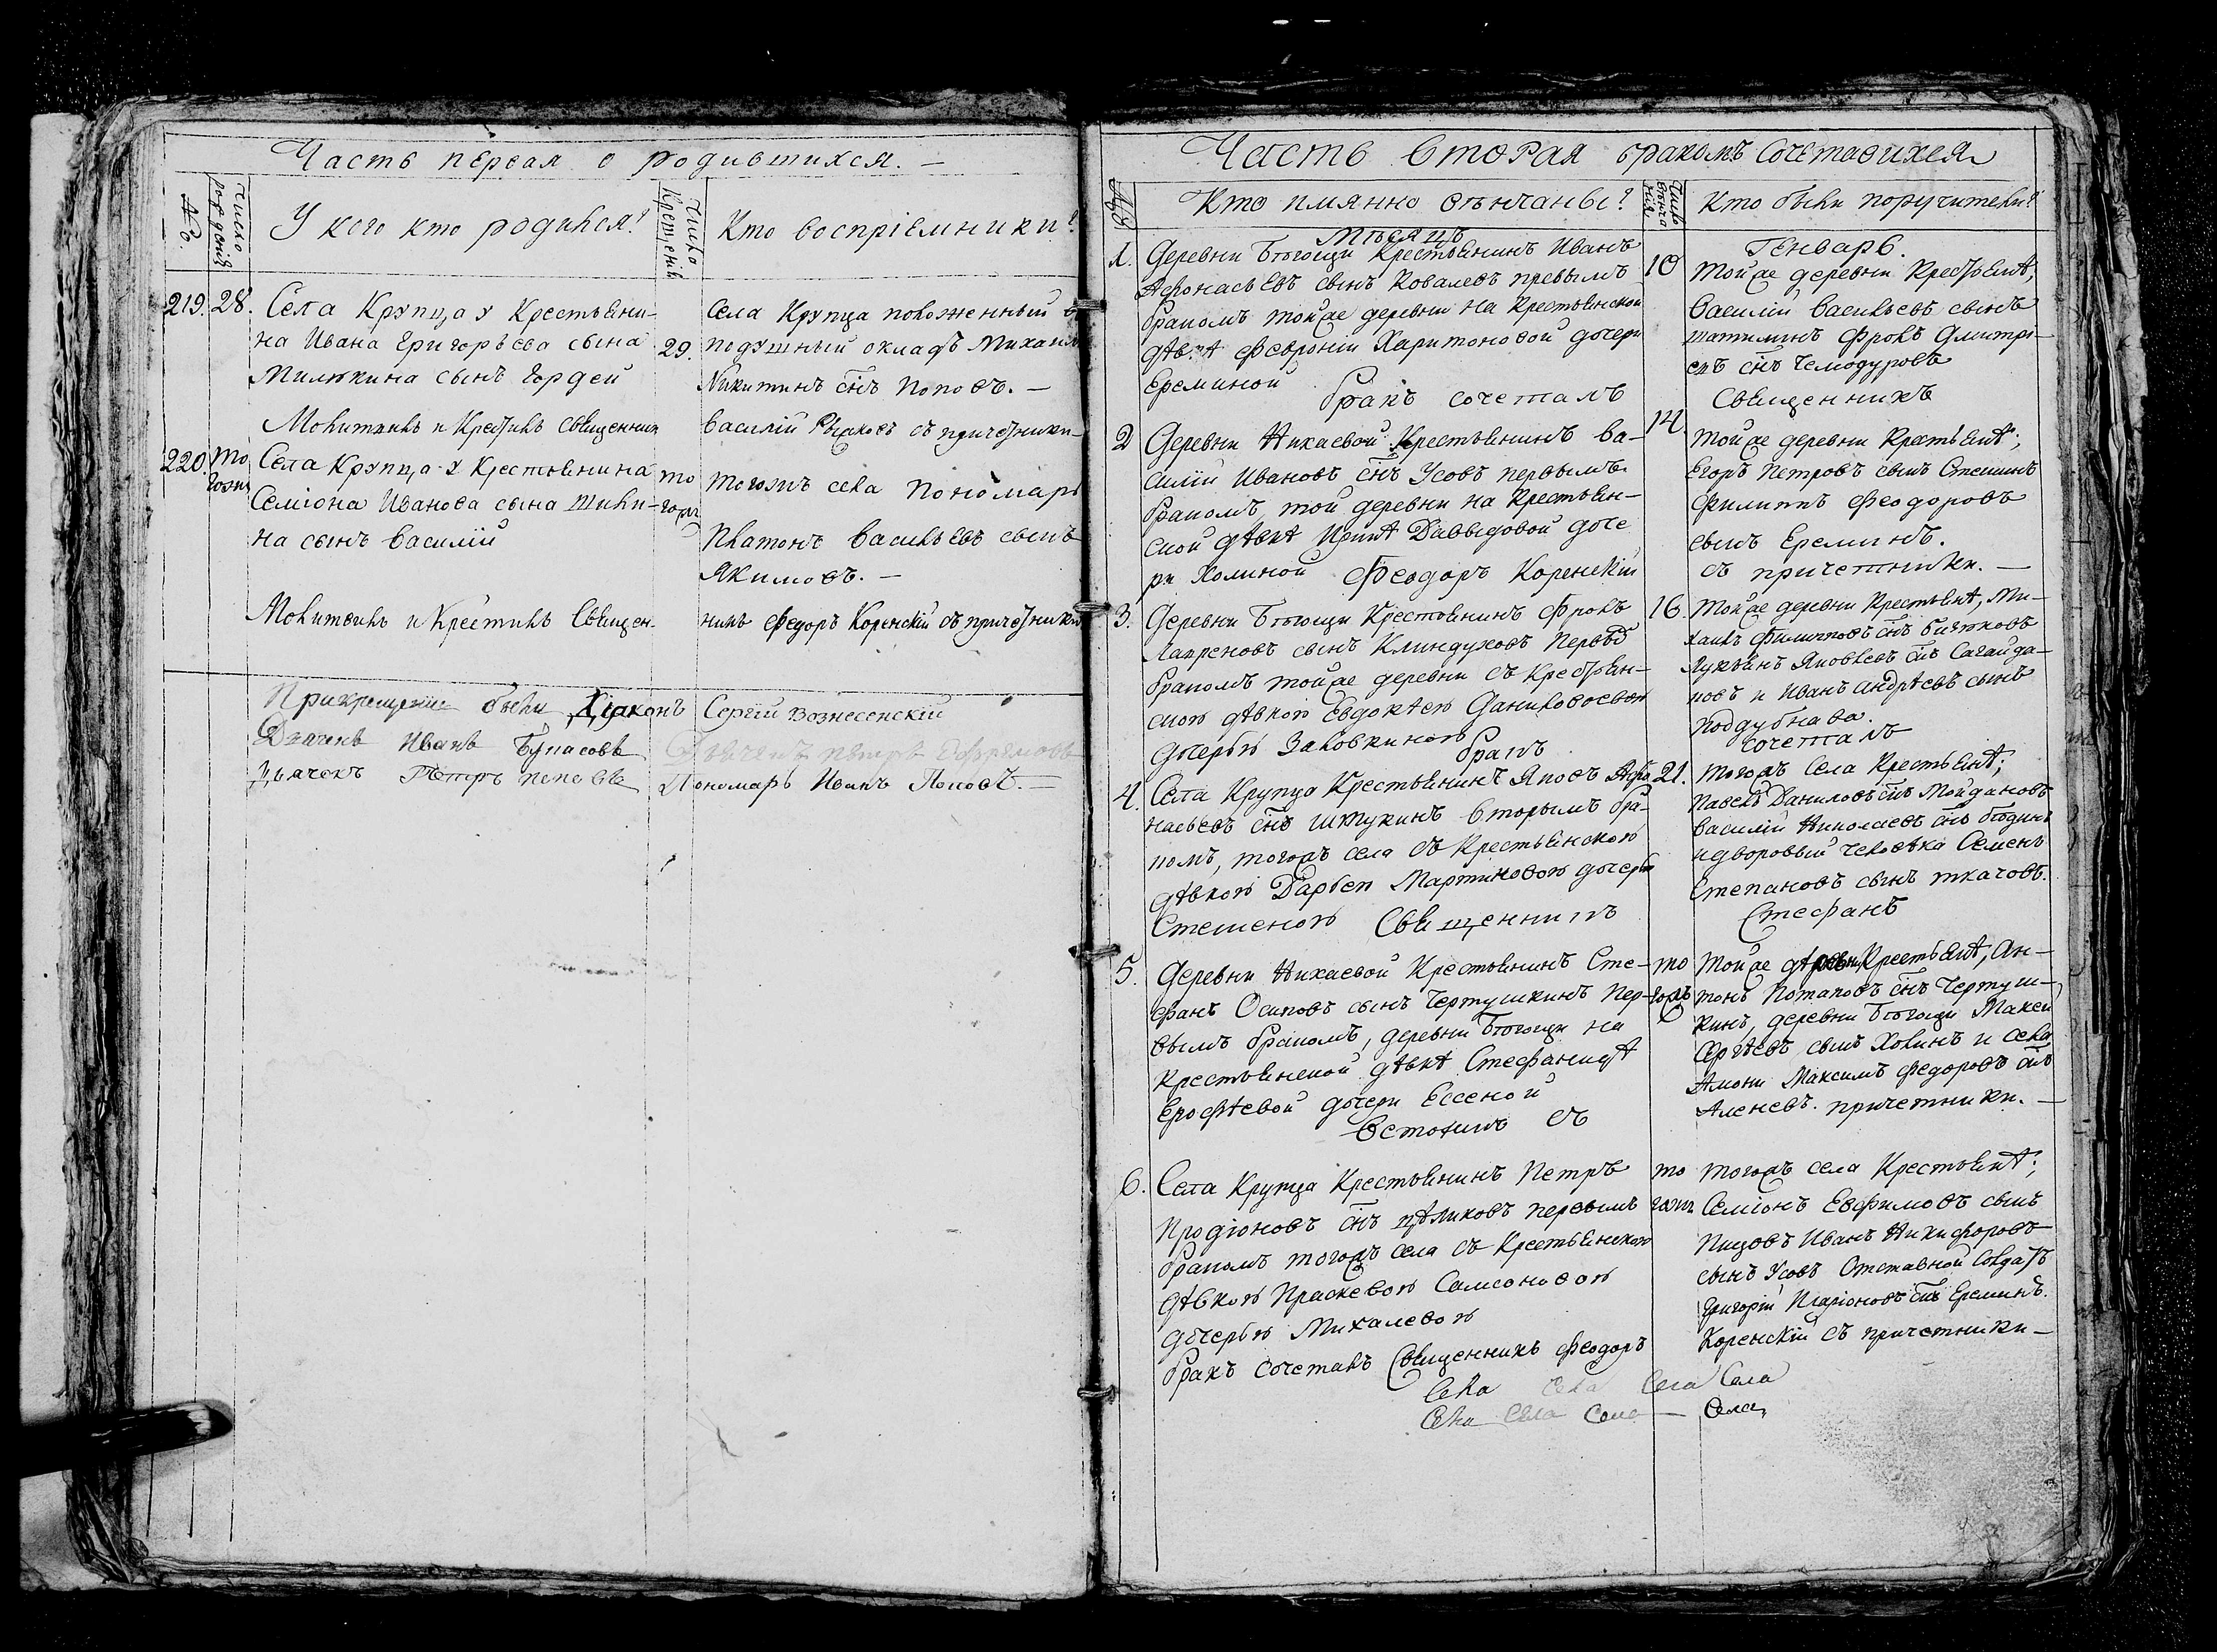 Часть первая о родившихся. —
№
Число рождѣнія
У кого кто родился?
Число крещенія
Кто воспріемники?
219. 28. Села Крупца у Крестьяни-
на Ивана Григорьева сына
Милюкина сынъ Гордей
29.
Села Крупца положенный в
подушный окладъ Михаилъ
Никитинъ сн҃ъ Поповъ. —
Молитвилъ и Крестилъ священникъ
Василій Рыжковъ съ причетники —
220. того жъ Села Крупца у Крестьянина
Семіона Иванова сына Шили-
на сынъ Василій
того жъ
тогожъ села Пономарь
Платонъ Васильевъ сынъ
Якимовъ. —
Молитвилъ и Крестилъ Священ-
никъ Федоръ Коренскій съ причетники
При крещеніи были Діаконъ Сергій Вознесенскій
Дьячекъ Иванъ
Дьячекъ Петръ Ефремовъ
Дьячекъ Петръ Поповъ
Пономарь Иванъ Поповъ. —
Часть вторая бракомъ сочетавшихся
№
Кто имянно вѣнчаны?
Число
Кто были поручители?
Мѣсяцъ Генварь.
1. Деревни Бтогощи Крестьянинъ Иванъ
Афонасьевъ сынъ Ковалевъ первымъ
бракомъ тойже деревни на Крестьянской
дѣвкѣ Февроніи Харитоновой дочери
Ереминой
10
тойже деревни Крестьянѣ,
Василій Васильевъ сынъ
Шатилинъ Фролъ Дмитрі-
евъ сн҃ъ Чемодуровъ
бракъ сочеталъ Священникъ
2 Деревни Нихаевой Крестьянинъ Ва-
силій Ивановъ сн҃ъ Усовъ первымъ
бракомъ, той деревни на Крестьян-
ской дѣвкѣ Иринѣ Давыдовой доче
ри Холиной
14.
тойже деревни Крестьянѣ;
Егоръ Петровъ сынъ Стешинъ
Филиппъ Феодоровъ
сынъ Ереминъ.
Феодоръ Коренскій съ причетники. —
3. Деревни Бтогощи Крестьянинъ Фролъ
Лавреновъ сынъ Клиндуховъ первы
бракомъ тойже деревни съ Крестьян-
скою дѣвкою Евдокѣею Даниловою
дочерью Заловкиною
16.
тойже деревни Крестьянѣ, Ми-
хаилъ Филиповъ сн҃ъ Бичковъ
Лукьянъ Яковлевъ сн҃ъ Сагайда-
ковъ и Иванъ Андрѣевъ сынъ
Поддубнава.
бракъ сочеталъ
4. Села Крупца Крестьянинъ Яковъ Афо
насьевъ сн҃ъ Штукинъ вторымъ бра-
комъ, тогожъ села съ Крестьянскою
дѣвкою Дарьею Мартиновою дочерью
Стешеною
21.
тогожъ Села Крестьянѣ;
Павелъ Даниловъ сн҃ъ Мойдановъ
Василій Николаевъ сн҃ъ Бтодинъ
и дворовый человѣка Семенъ
Степановъ сынъ ткачовъ.
Священникъ Стефанъ
5. Деревни Нихаевой Крестьянинъ Сте-
фанъ Осиповъ сынъ Чертушкинъ пер-
вымъ бракомъ, деревни Бтогощи на
Крестьянской дѣвкѣ Стефанидѣ
Ерофѣевой дочери Ессеной
то гожъ
тойже деревни Крестьянѣ, Ан-
тонъ Потаповъ сн҃ъ Чертуш-
кинъ, деревни Бтогощи Макей
Сергѣевъ сынъ Холинъ и села
Амони Максимъ Федоровъ сн҃ъ
Аленевъ.
съ причетники. —
6. Села Крупца Крестьянинъ Петръ
Продіоновъ сн҃ъ Цѣликовъ первымъ
бракомъ тогожъ села съ Крестьянскою
дѣвкою Прасковою Самсоновою
дочерью Михалевою
то гожъ
тогожъ села Крестьянѣ;
Семіонъ Евфимовъ сынъ
Пизовъ Иванъ Никифоровъ
сынъ Усовъ Отставной Солдатъ
Григорій Иларіоновъ сн҃ъ Ереминъ.
бракъ сочеталъ Священникъ Феодоръ Коренскій съ причетники —
Села Села Села Села
Села Села Села — Села,